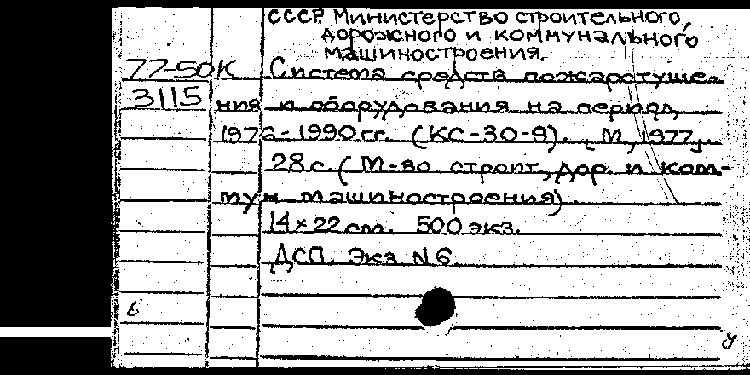 СССР. Министерство строительного,
дорожного и коммунального
машиностроения.
77-50К Система средств пожаротуше-
3115 ния и оборудования на период
1972-1990 гг. (КС-30-8). М, 1977.
28 с. (М-во строит., дор. и ком-
мун. машиностроения).
14×22 см. 500 экз.
ДСП. Экз N 6